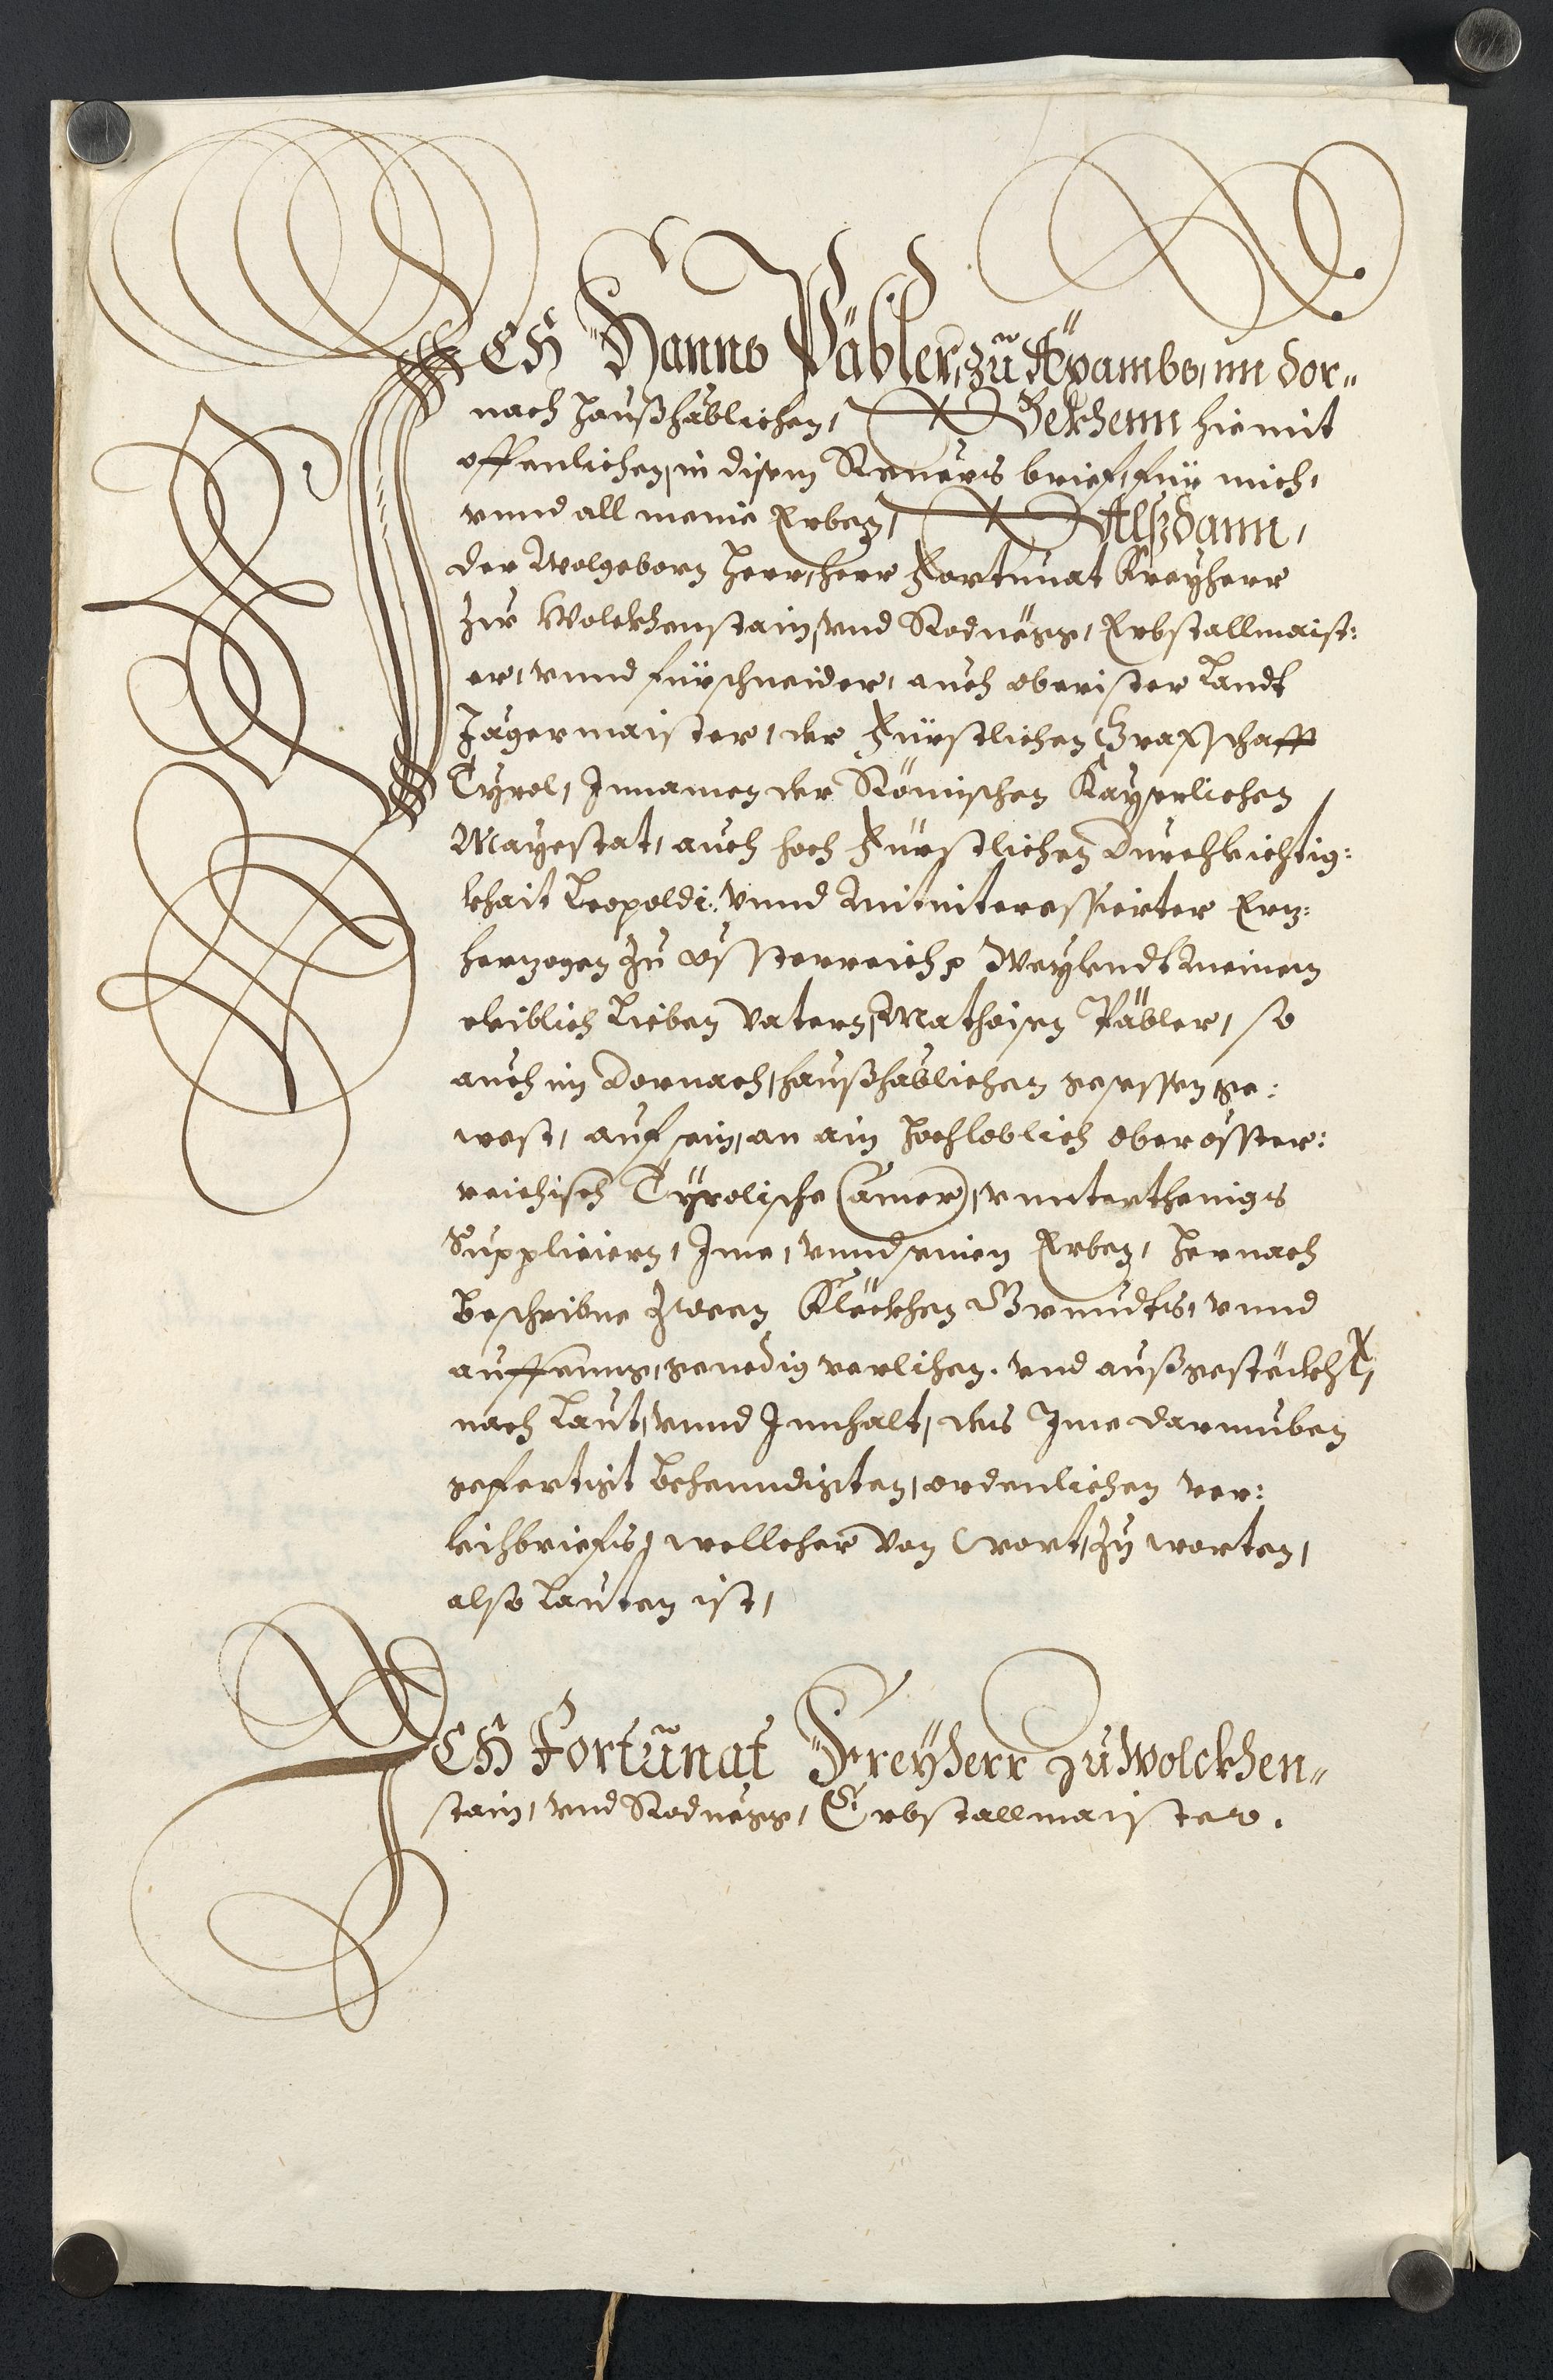 ICH Hanns Päbler, zu Äpambs, im dor„
nach haußhäblichen, Bekhenn hiemit
offenlichen, in disem Reuers brief, für mich,
vnnd all meine Erben, Alßdann,
der Wolgeborn Herr, herr Fortunat Freyherr
zu Wolckhenstain, vnd Rodnegg, Erbstallmaist:
er, vnnd fürschneider, auch obrister Landt
Jägermaister, der Fürstlichen Graffschafft
Tyrol, Innamen der Römischen Kayserlichen
Mayestat, auch hoch Fürstlichen Durchleichtig:
khait Leopoldi, vnnd mitinteressierter Ertz:
hertzogen zu össterreich, Weylendt meinem
eleiblich Lieben Vatern, Matheisen Päbler, so
auch im dornach, haußhäblichen gesessen ge:
west, auf sein, an ain hochloblich oberösster:
reichisch Tyrolische Camer, vnnterthenigs
Suppliciern, Ime, vnnd seinen Erben, hernach
beschribne zween Fleckhen Grundts, vnnd
auffenng, genedig verlihen, vnd außgesteckht,
nach Laut, vnnd Innhalt, des Ime darumben
gefertigt behenndigten, ordenlichen ver:
leichbriefs, wellcher von wort, zu worten,
also Lauten ist,
ICH Fortunat Freyherr zu Wolckhen„
stain, vnd Rodnegg, Erbstallmaister.